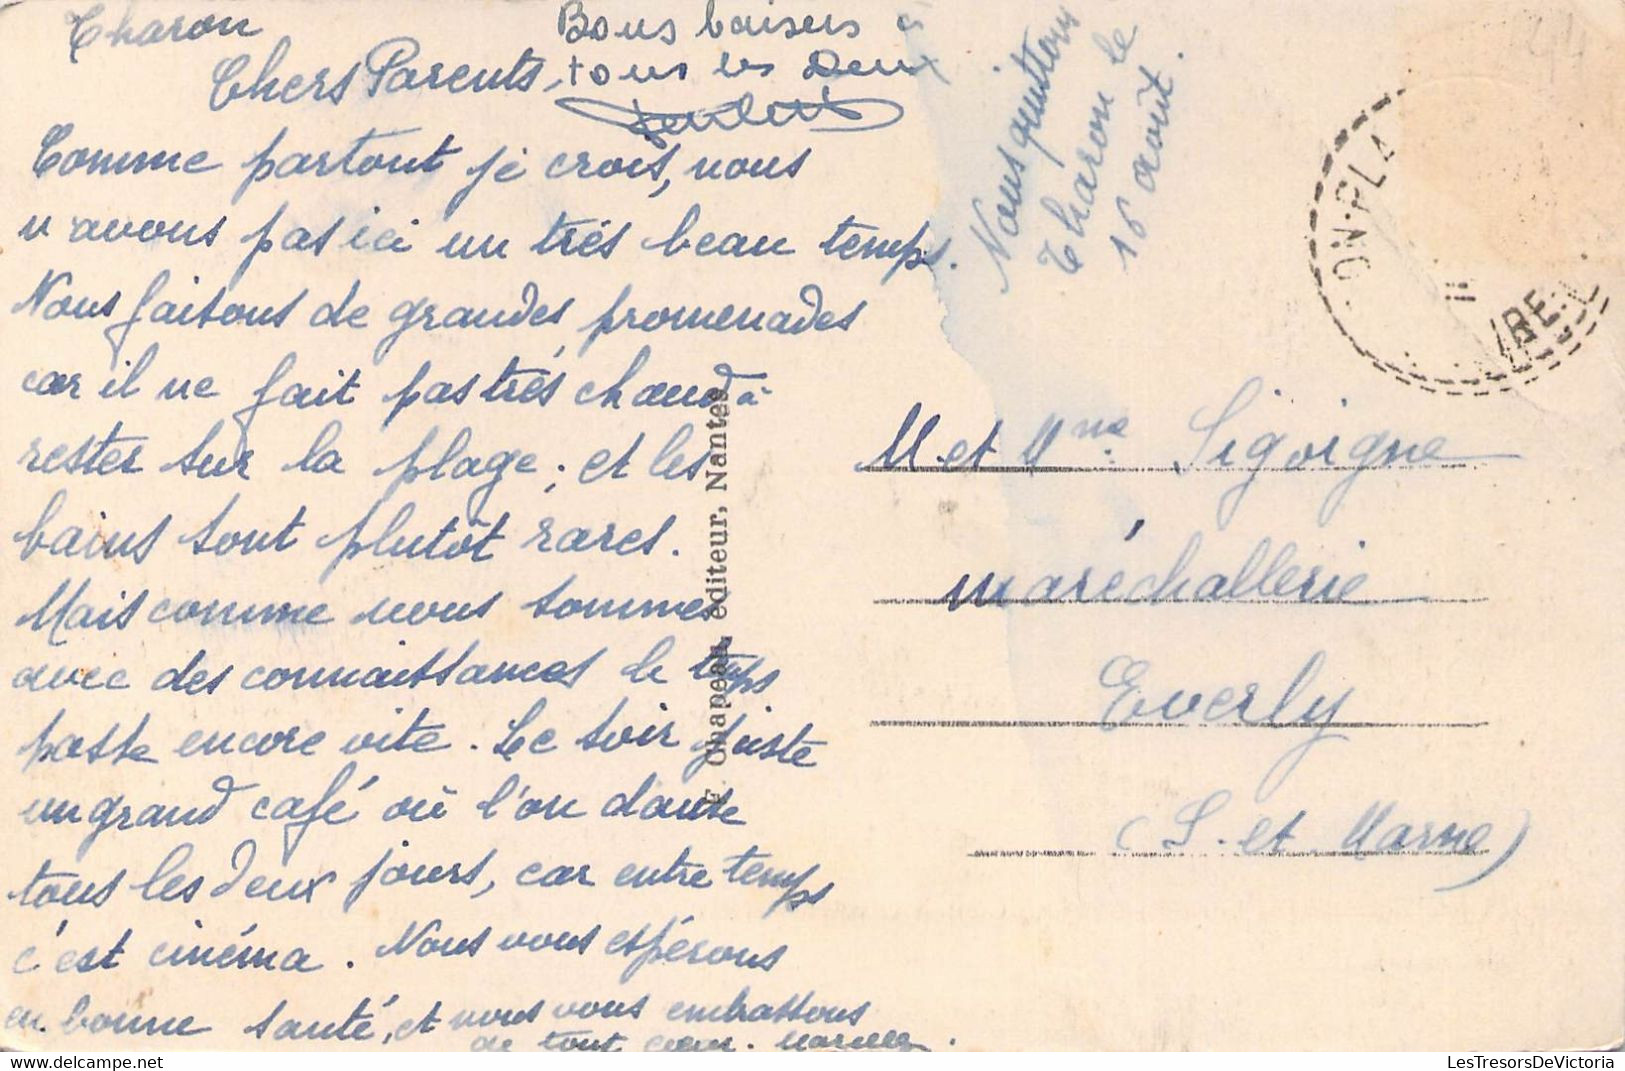 Tharon
Bons baisers à
Chers Parents, tous les Deux
Comme partout je crois, nous
n'avons pas ici un très beau temps.
Nous faisons de grandes promenades
car il ne fait pas très chaud à
rester sur la plage ; et les
bains sont plutôt rares.
Mais comme nous sommes
avec des connaissances le temps
passe encore vite. Le soir juste
un grand café où l'on danse
tous les deux jours, car entre temps
c'est cinéma. Nous vous espérons
en bonne santé, et nous vous embrassons
de tout coeur. Marcelle.
Nous quittons
Tharon le
16 août.
F. Chapeau, éditeur, Nantes
ON-PLA
RE-
M et Mme Sigoigne
maréchallerie
Everly
(S. et Marne)
LesTresorsDeVictoria